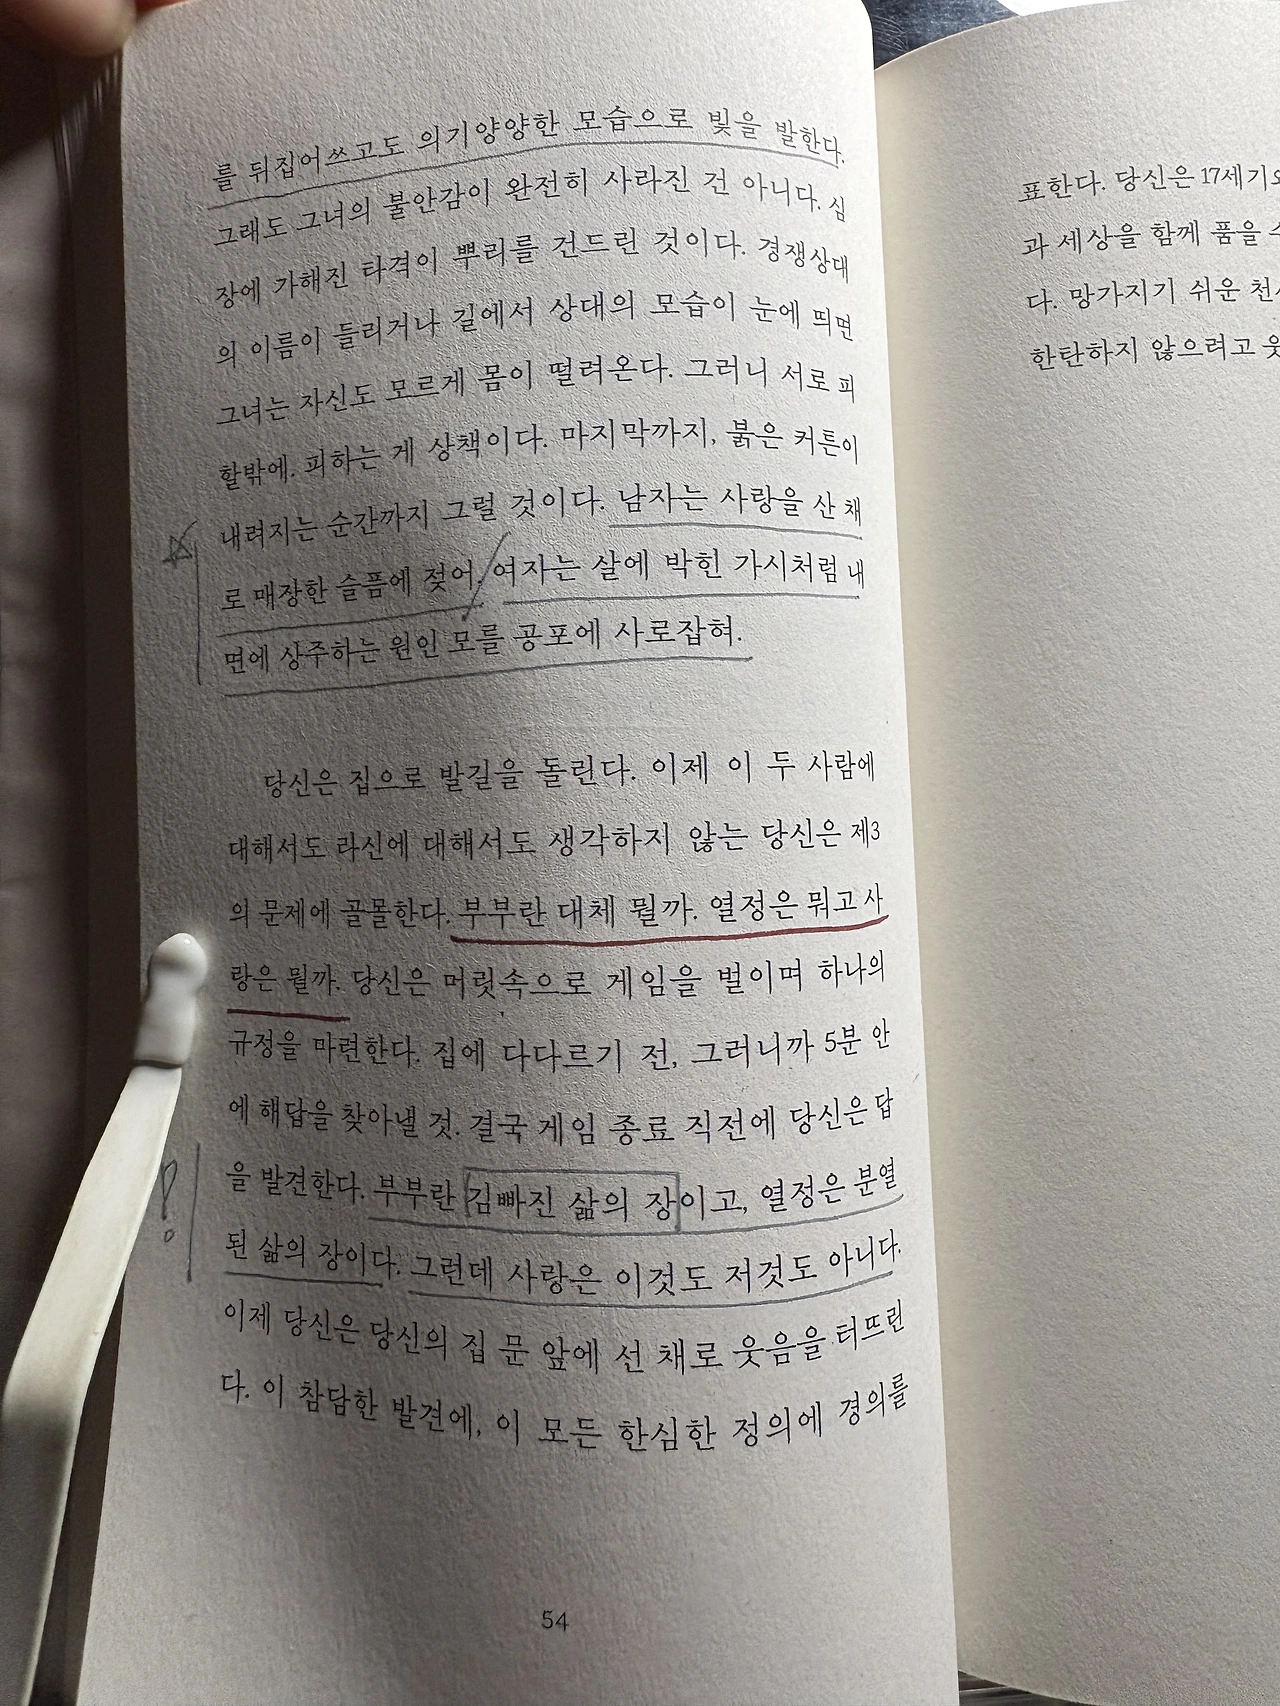 를 뒤집어쓰고도 의기양양한 모습으로 빛을 발한다.
그래도 그녀의 불안감이 완전히 사라진 건 아니다. 심
장에 가해진 타격이 뿌리를 건드린 것이다. 경쟁상대
의 이름이 들리거나 길에서 상대의 모습이 눈에 띄면
그녀는 자신도 모르게 몸이 떨려온다. 그러니 서로 피
할밖에. 피하는 게 상책이다. 마지막까지, 붉은 커튼이
내려지는 순간까지 그럴 것이다. 남자는 사랑을 산 채
로 매장한 슬픔에 젖어, 여자는 살에 박힌 가시처럼 내
면에 상주하는 원인 모를 공포에 사로잡혀.
당신은 집으로 발길을 돌린다. 이제 이 두 사람에
대해서도 라신에 대해서도 생각하지 않는 당신은 제3
의 문제에 골몰한다. 부부란 대체 뭘까. 열정은 뭐고 사
랑은 뭘까. 당신은 머릿속으로 게임을 벌이며 하나의
규정을 마련한다. 집에 다다르기 전, 그러니까 5분 안
에 해답을 찾아낼 것. 결국 게임 종료 직전에 당신은 답
을 발견한다. 부부란 김빠진 삶의 장이고, 열정은 분열
된 삶의 장이다. 그런데 사랑은 이것도 저것도 아니다.
이제 당신은 당신의 집 문 앞에 선 채로 웃음을 터뜨린
다. 이 참담한 발견에, 이 모든 한심한 정의에 경의를
54
표한다. 당신은 17세기와
과 세상을 함께 품을 수
다. 망가지기 쉬운 천
한탄하지 않으려고 웃